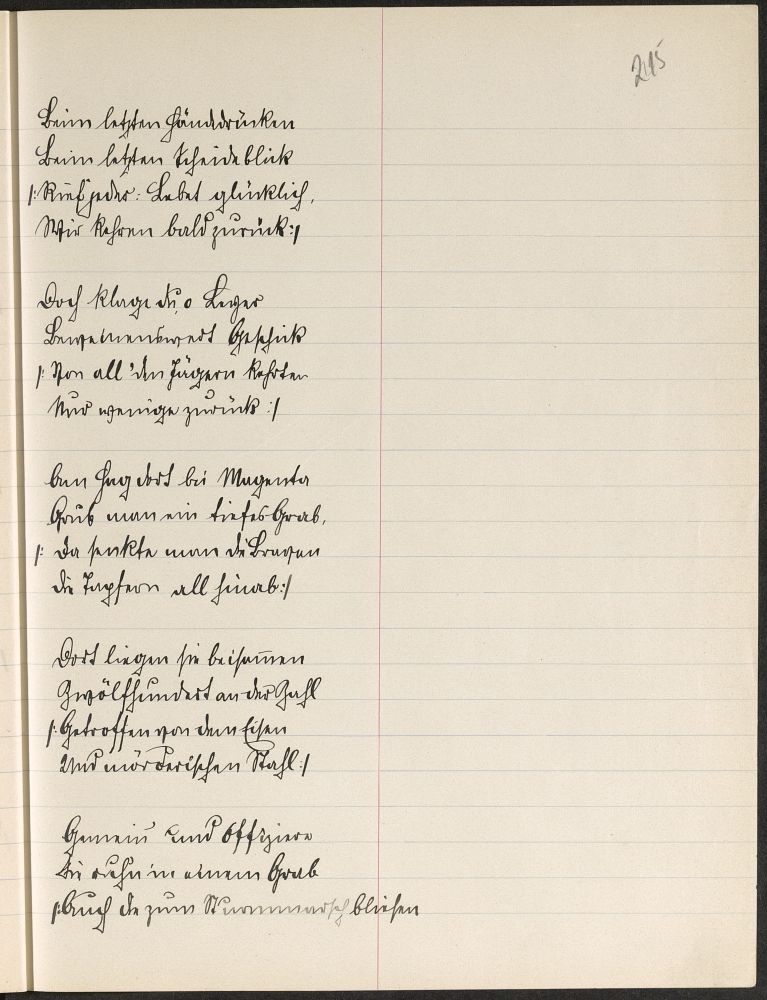 215
Beim letzten Händedrücken
Beim letzten Scheideblick
/: Rief jeder: Lebet glücklich,
Wir kehren bald zurück :/
Doch klage du, o
Beweinenswert Geschick
/: Von all' den Jägern kehrten
Nur wenige zurück :/
Am Hag dort bei Magenta
Grub man ein tiefes Grab,
/: Da senkte man die Braven
die Tapfern all hinab :/
Dort liegen sie beisam̅en
Zwölfhundert an der Zahl
/: Getroffen von dem Eisen
Und mörderischen Stahl :/
Gemein' und Offiziere
Sie ruhn in einem Grab
/: Auch die zum Sturmmarsch bliesen